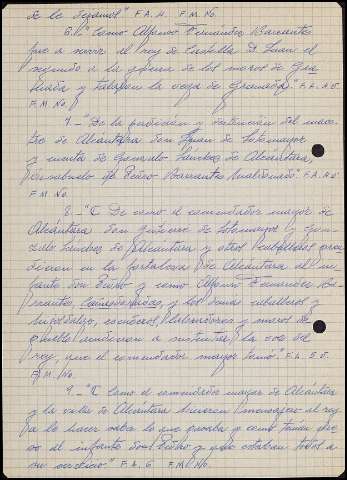 de lo dejamos" F. A. 4. F. M. No.
6.- "Como Alfonso Fernandez Barrantes
fue a servir al rey de Castilla D. Juan el
segundo a la guerra de los moros de Gra-
nada y talaron la vega de Granada." F. A. 4.
F. M. No.
7.- "De la prisión y detención del maes-
tro de Alcántara don Juan de Sotomayor
y muerte de Gonzalo Sánchez de Alcántara,
de Pedro Barrantes Maldonado" F. A.
F. M. No.
8.- "C De como el comendador mayor de
Alcántara don Gutierre de Sotomayor y Gon-
zalo Sánchez de Alcántara y otros caballeros pren-
dieron en la fortaleza de Alcántara al in-
fante don Pedro y como Alfonso Fernandez Ba-
rrantes, y los demas caballeros y
hijosdalgo, escuderos, labradores y moros de
pueblo acudieron a sustentar la voz del
rey, que el comendador mayor tomó." F. A. 5.
F. M. No.
9.- "C Como el comendador mayor de Alcántara
y la villa de Alcántara hicieron mensajero al rey
a le hacer saber lo que pasaba y como tenían pre-
so al infante don Pedro y que estaban todos a
su servicio" F. A. 6 F. M. No.